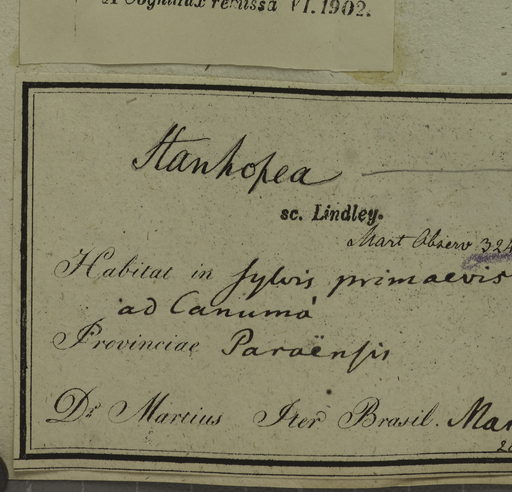 A Cogniaux remissa VI. 1902.
Stanhopea
sc. Lindley.
Mart Observ 324
Habitat in sylvis primaevis
ad Canumá
Provinciae Paraënsis
Dr Martius Iter Brasil. Mar